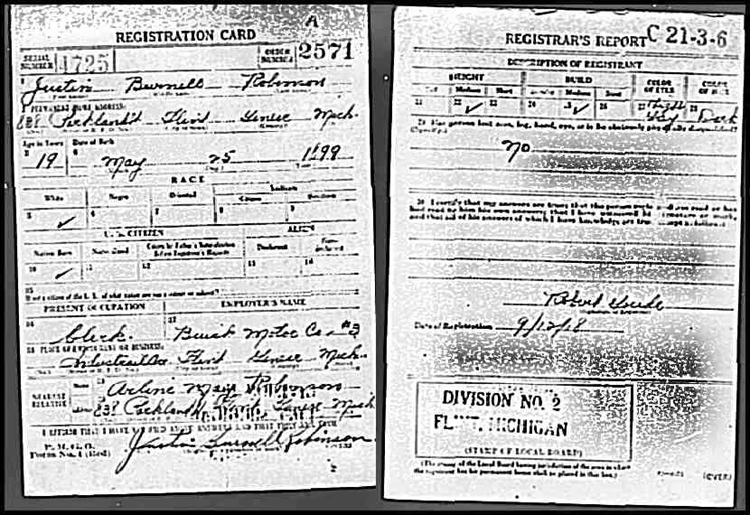 A
REGISTRATION CARD
SERIAL NUMBER 1725 ORDER NUMBER 2571
Justin Burnell Robinson
PERMANENT HOME ADDRESS:
Flint Genesee Mich.
Age in Years Date of Birth
19 May 25 1899
RACE
White Negro Oriental Indian
Citizen
5 ✓ 6 7 8 9
U. S. CITIZEN ALIEN
Native Born Naturalized Citizen by Father's Naturalization Before Registrant's Majority Declarant Non-declarant
10 ✓ 11 12 13 14
15
If not a citizen of the U. S., of what nation are you a citizen or subject?
PRESENT OCCUPATION EMPLOYER'S NAME
16 17
Clerk Buick Motor Co - #3
18 PLACE OF EMPLOYMENT OR BUSINESS:
Flint Genesee Mich.
NEAREST RELATIVE
Name 19 Arline May Robinson
Address 20 Flint Genesee Mich
I AFFIRM THAT I HAVE VERIFIED ABOVE ANSWERS AND THAT THEY ARE TRUE
P. M. G. O.
Form No. 1 (Red)
Justin Burnell Robinson
REGISTRAR'S REPORT C 21-3-6
DESCRIPTION OF REGISTRANT
HEIGHT BUILD COLOR OF EYES COLOR OF HAIR
Tall Medium Short Slender Medium Stout
21 22 ✓ 23 24 25 ✓ 26 27 28 Dark
29 Has person lost arm, leg, hand, eye, or is he obviously physically disqualified?
(Specify.)
No
30 I certify that my answers are true; that the person registered has read or has
had read to him his own answers; that I have witnessed his signature or mark,
and that all of his answers of which I have knowledge are true, except as follows:
Robert
Date of Registration 9/12/18
DIVISION NO. 2
FLINT, MICHIGAN
(STAMP OF LOCAL BOARD)
(The stamp of the Local Board having jurisdiction of the area in which
the registrant has his permanent home shall be placed in this box.)
(OVER)